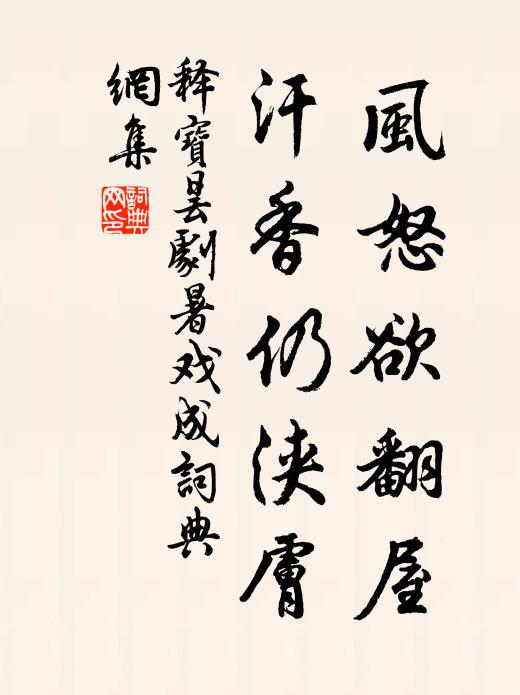 風怒欲翻屋
汗香仍浹膚
释寶曇劇暑戏成詞典
網集
詞典網印